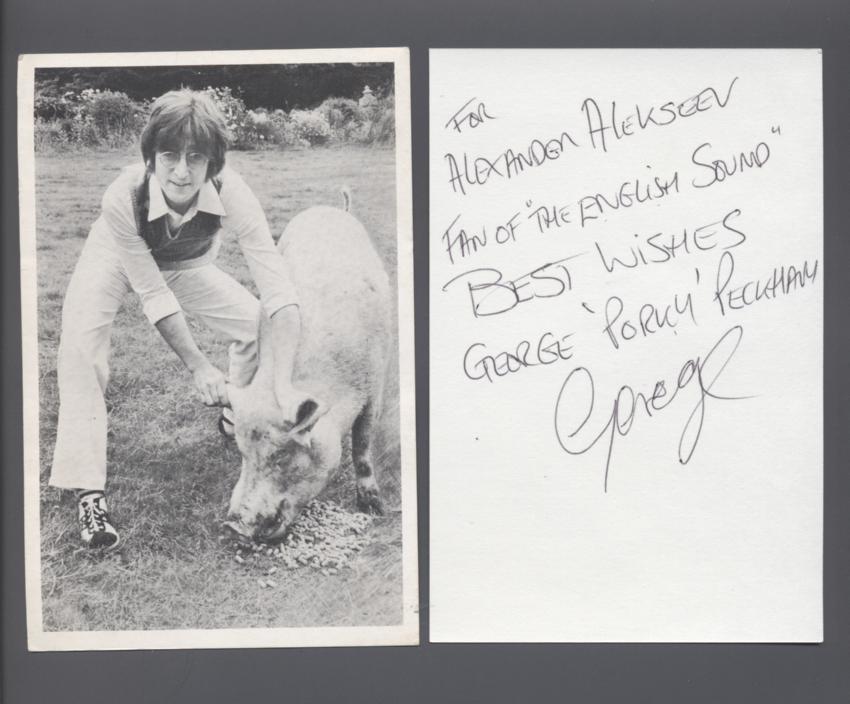 FOR
ALEXANDER ALEKSEEV
FAN OF "THE ENGLISH SOUND"
BEST WISHES
GEORGE 'PORKY' PECKHAM
George